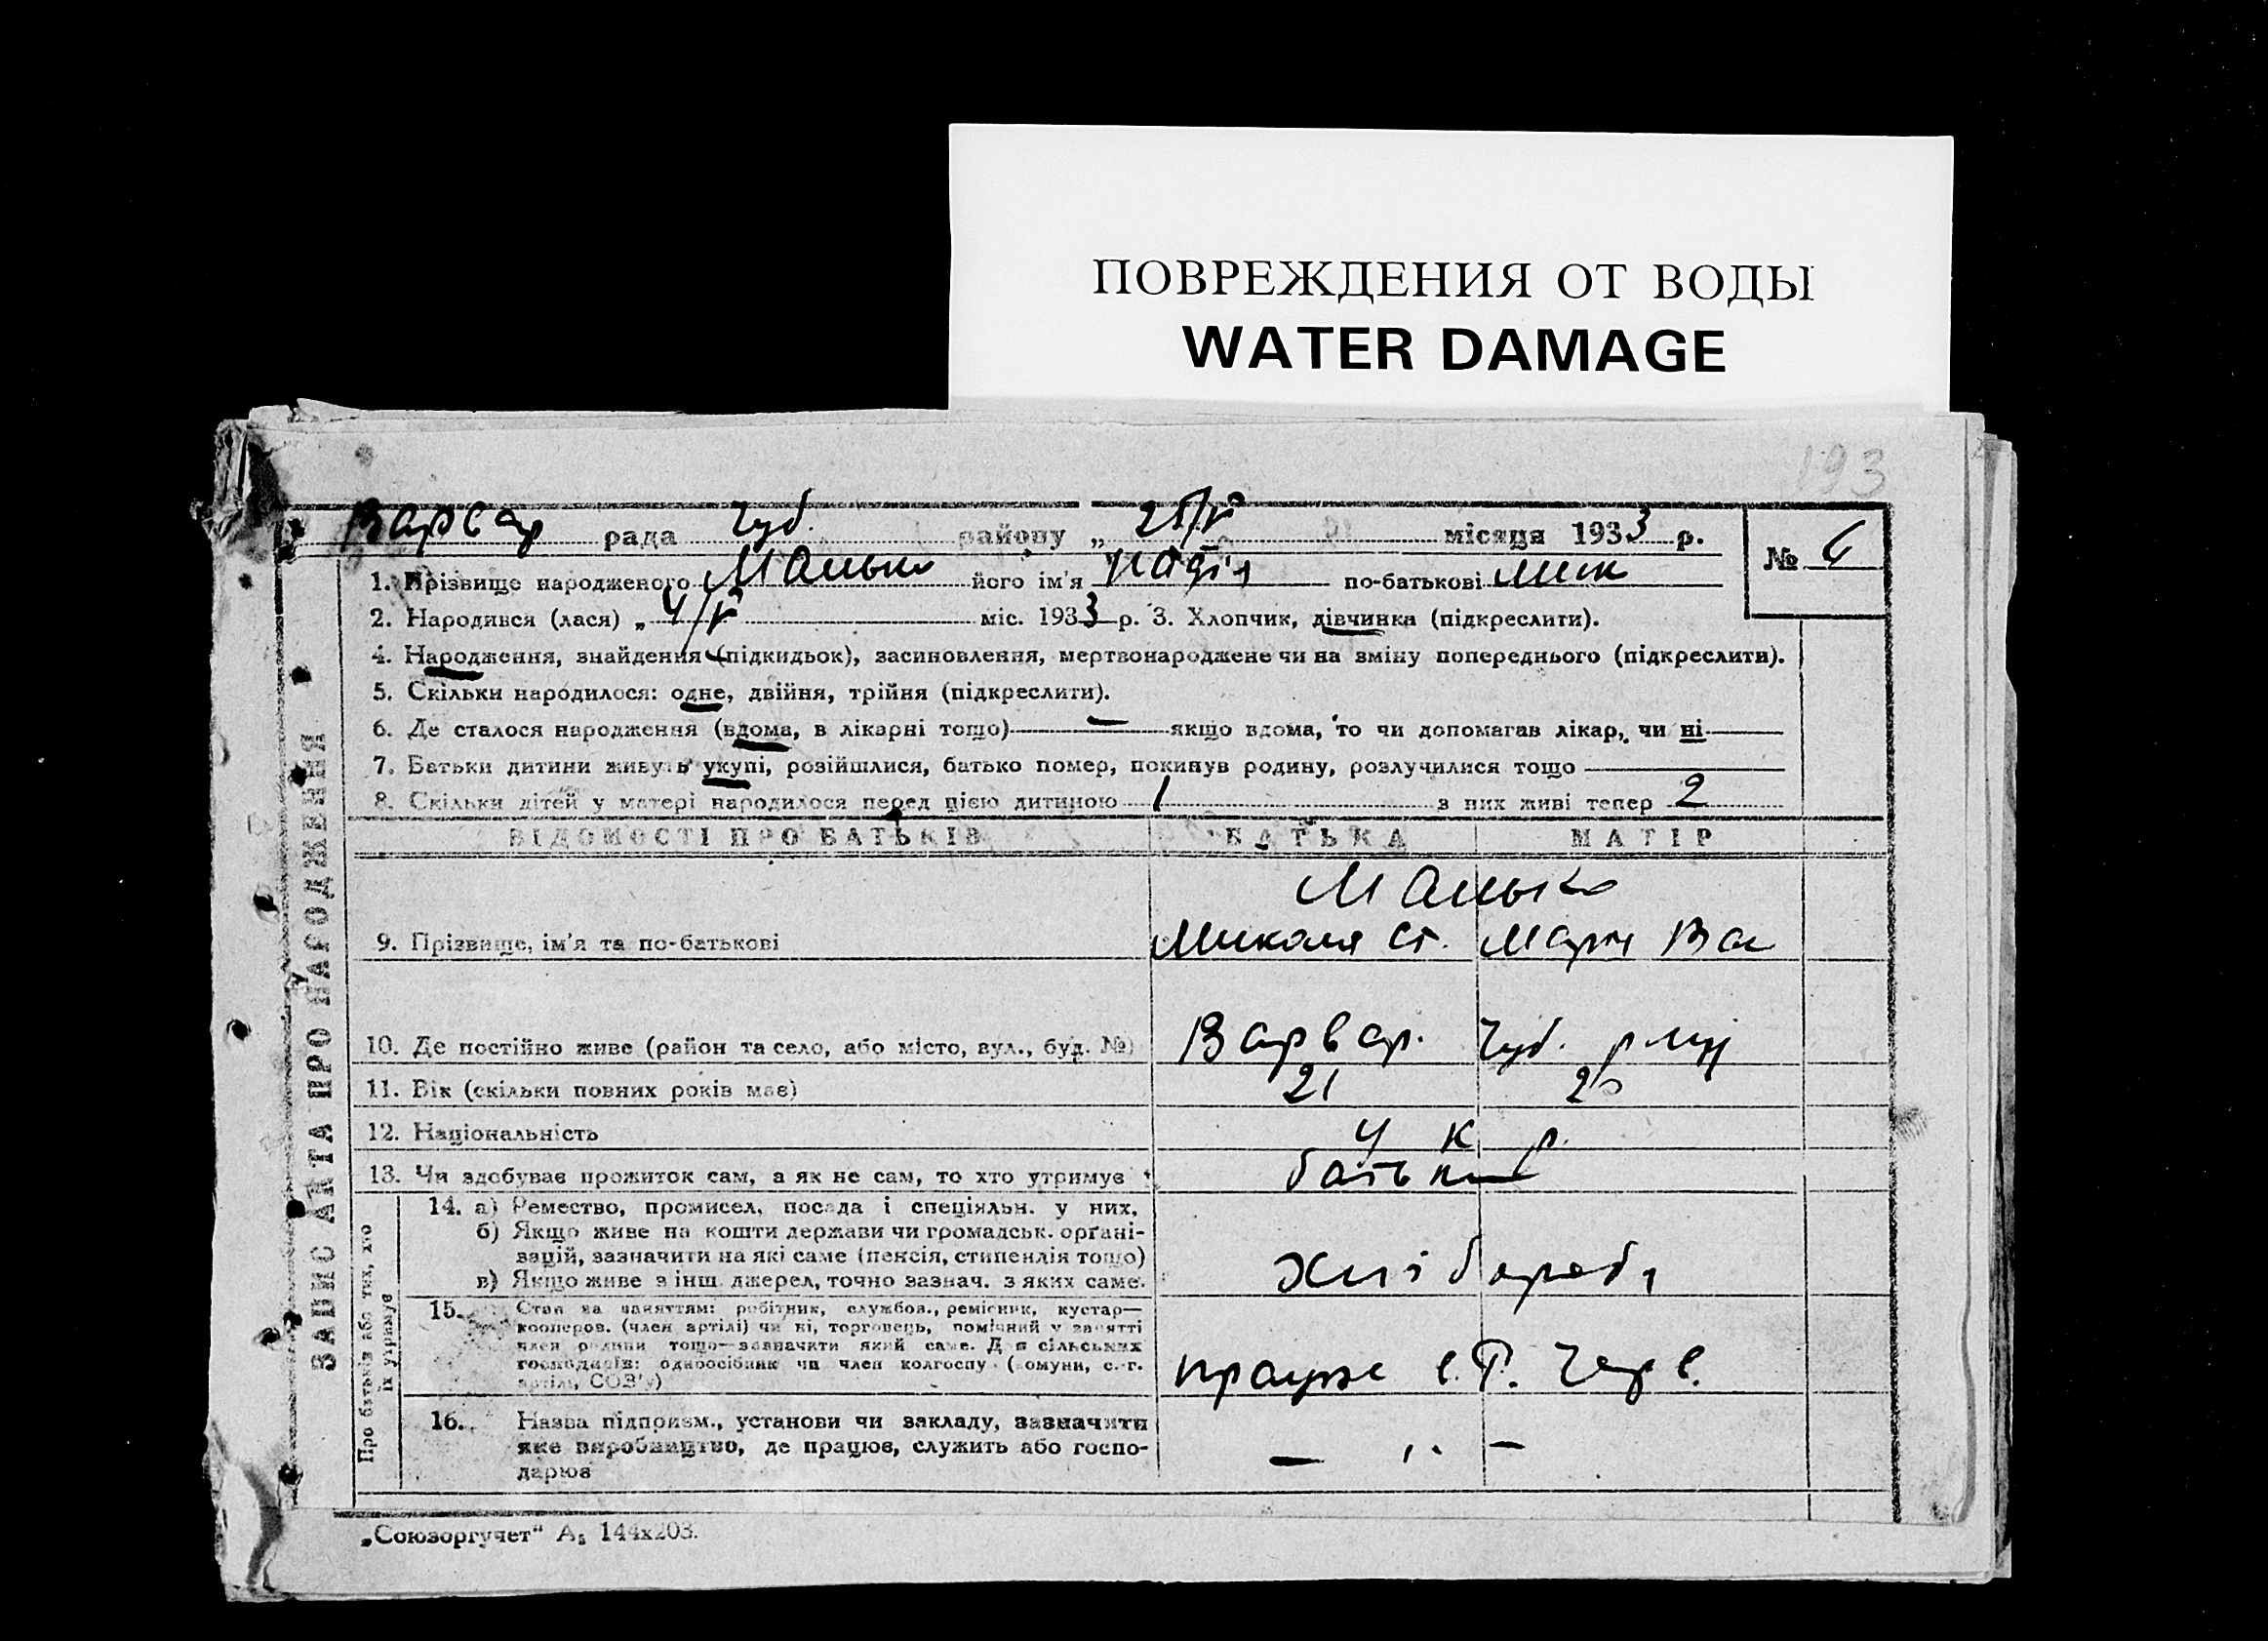 ПОВРЕЖДЕНИЯ ОТ ВОДЫ
WATER DAMAGE
193
Варвар рада Чуб. району „ 25/V місяця 1933 р.
№ 6
1. Прізвище народженого Манько його ім'я Надія по-батькові Мик
2. Народився (лася) „ 4/V міс. 1933 р. 3. Хлопчик, дівчинка (підкреслити).
4. Народження, знайдення (підкидьок), засиновлення, мертвонароджене чи на зміну попереднього (підкреслити).
5. Скільки народилося: одне, двійня, трійня (підкреслити).
6. Де сталося народження (вдома, в лікарні тощо) — якщо вдома, то чи допомагав лікар, чи ні
7. Батьки дитини живуть укупі, розійшлися, батько помер, покинув родину, розлучилися тощо
8. Скільки дітей у матері народилося перед цією дитиною 1 з них живі тепер 2
ВІДОМОСТІ ПРО БАТЬКІВ БАТЬКА МАТІР
Манько
9. Прізвище, ім'я та по-батькові Микола Ст. Мария Вас
10. Де постійно живе (район та село, або місто, вул., буд. №) Варвар. Чуб. р
11. Вік (скільки повних років має) 21 20
12. Національність Укр.
13. Чи здобуває прожиток сам, а як не сам, то хто утримує батьки
14. а) Ремество, промисел, посада і спеціяльн. у них.
б) Якщо живе на кошти держави чи громадськ. орґані-
зацій, зазначити на які саме (пенсія, стипендія тощо)
в) Якщо живе з інш. джерел, точно зазнач. з яких саме. Хлібороби
15. Стан за заняттям: робітник, службов., ремісник, кустар—
кооперов. (член артілі) чи ні, торговець, помічний у занятті
член родини тощо—зазначити який саме. Для сільських
господарів: одноосібник чи член колгоспу (комуни, с.-г.
артілі, СОЗ'у) працює Черв.
16. Назва підприєм., установи чи закладу, зазначити
яке виробництво, де працює, служить або госпо-
дарює — „ —
ЗАПИС АКТА ПРО НАРОДЖЕННЯ
Про батьків або тих, хто
їх утримує
„Союзоргучет“ А5 144х203.